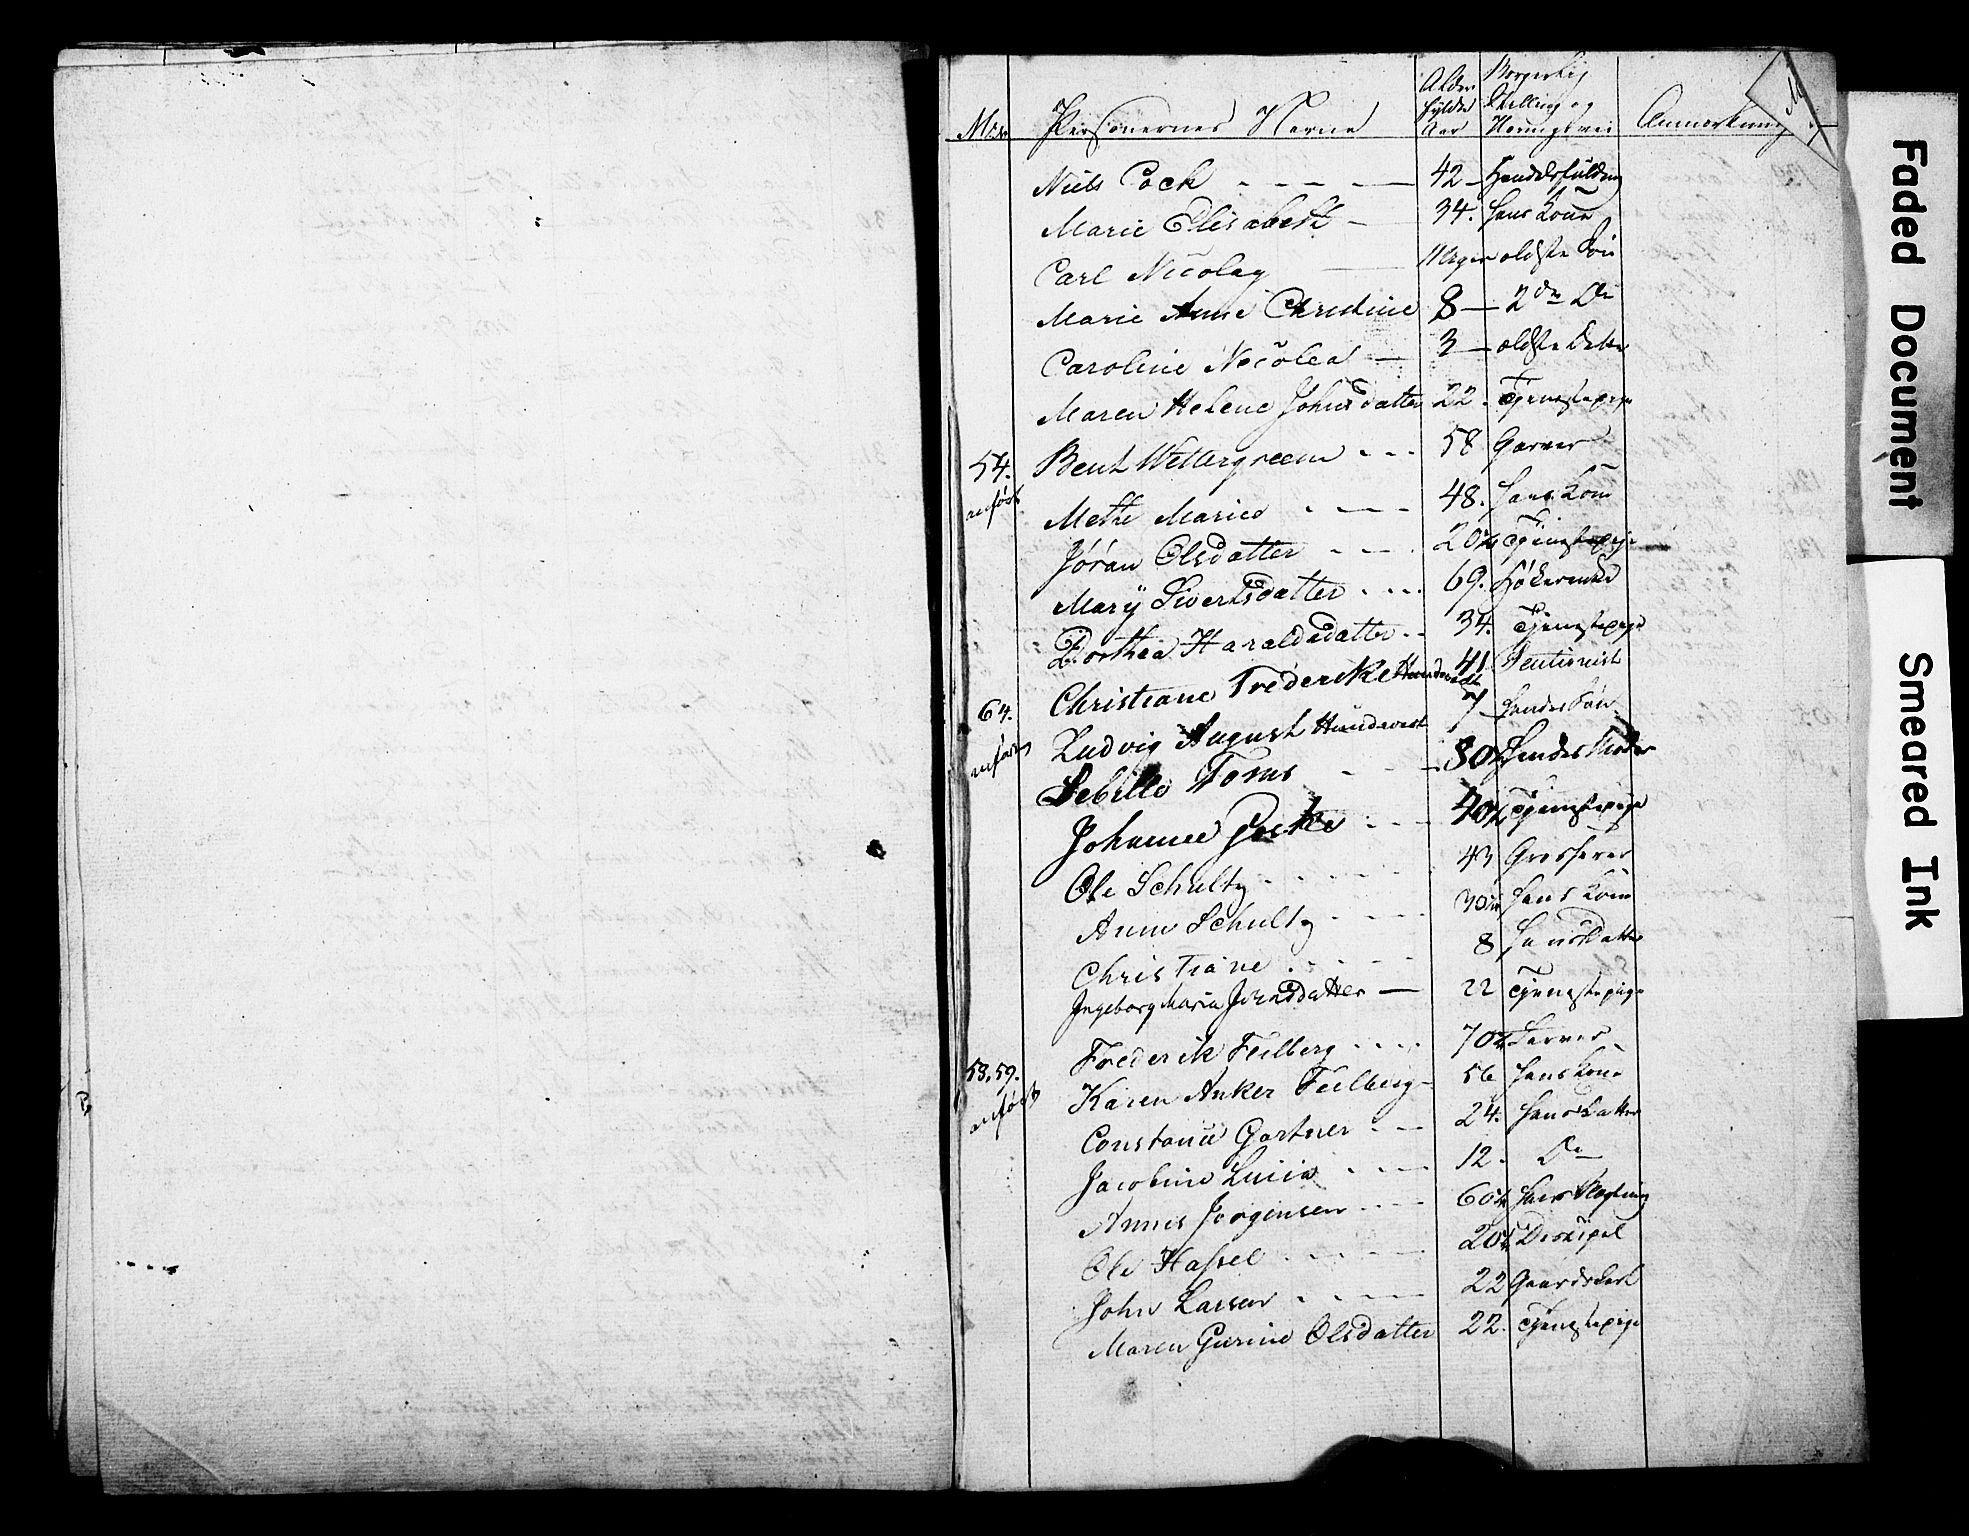 Personernes Navne Alder fyldte Aar Borgerlig Stilling og Næringsvei Anmærkning
Niels Cock 42 Handelsfuldm
Marie Elisabeth 34. Hans Kone
Carl Nicolay 11 ældste Søn
Marie Anne Christine 8 2den Do
Caroline Nicolea 3 ældste Datter
Maren Helene Johnsdatter 22. Tjenestepige
54. Bent Wettergreen 58 Garver
Mette Marie 48. Hans Kone
Jøran Olsdatter 20 Tjenestepige
Mary Sivertsdatter 69. Høkerenke
Dorthea Haraldsdatter 34. Tjenestepige
64. Christiane Frederikke Hundevadt 41 Pentionist
Ludvig August Hundevadt 7 Hendes Søn
Sebille Toms 80 Hendes Moder
Johanne 40 Tjenestepige
Ole Schultz 43 Grosserer
Anne Schultz 30 Hans Kone
Christiane 8 Hans Datter
Ingeborg Maria Jensdatter 22 Tjenestepige
53, 59. Frederik Feilberg 70 Farver
Karen Anker Feilberg 56 Hans Kone
Constance Gartner 24. Hans Datter
Jacobine Lucia 12. Do
Annes Jørgensen 60 Hans Slægtning
Ole Hassel 20 Discipel
John Larsen 22 Gaardskarl
Maren Gurine Olsdatter 22. Tjenestepige
Faded Document
Smeared Ink